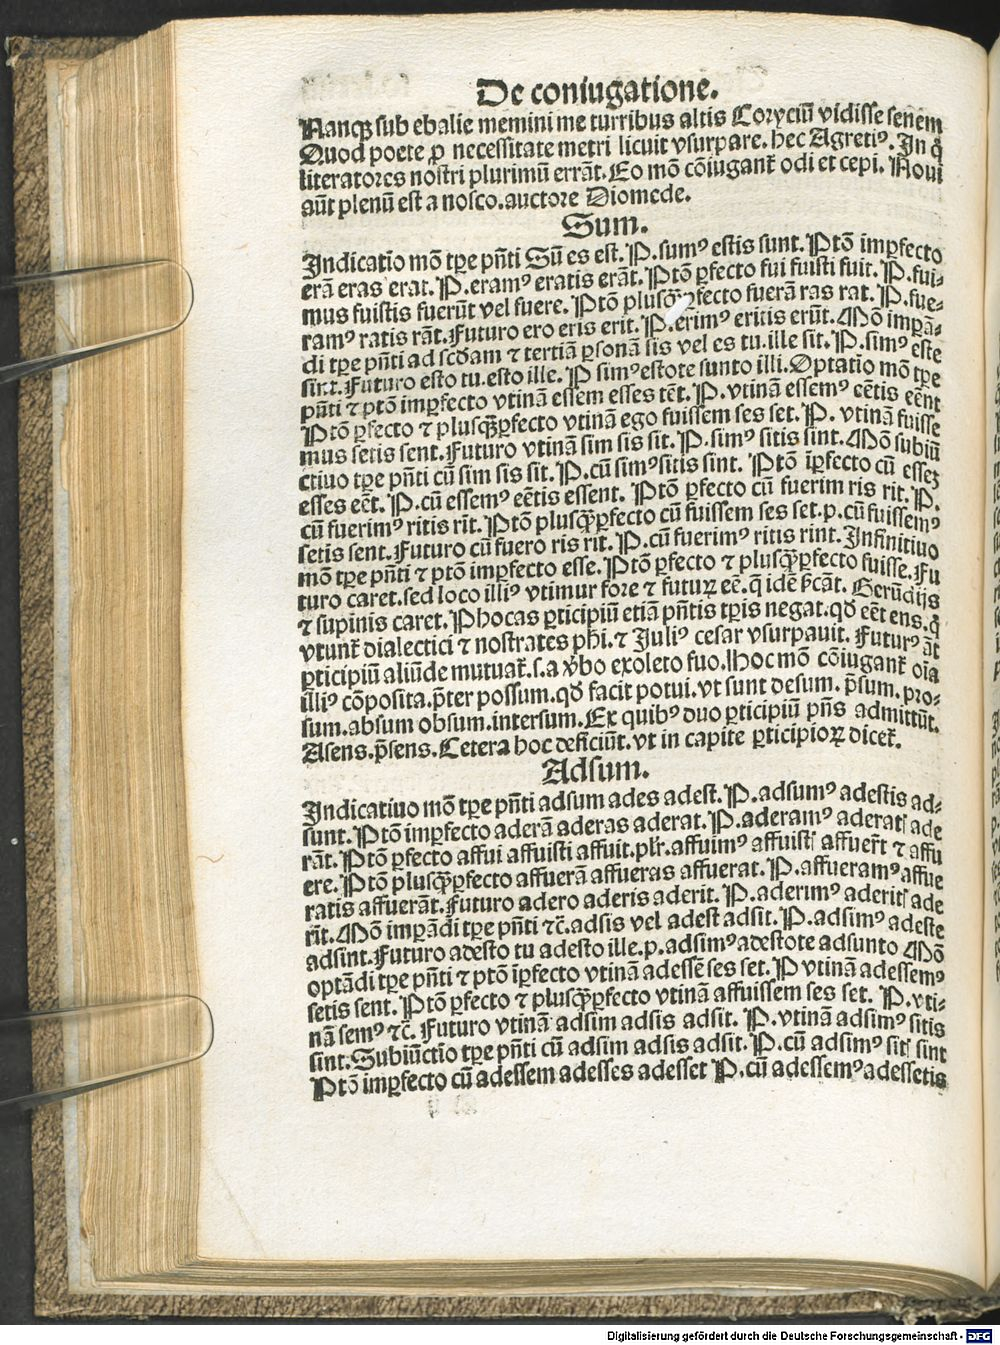 De coniugatione.
Nanqꝫ sub ebalie memini me turribus altis Coryciū vidisse senem
Quod poete ꝓ necessitate metri licuit vsurpare. hec Agretiꝰ. In q̄
literatores nostri plurimū errāt. Eo mō cōiugant᷑ odi et cepi. Noui
aūt plenū est a nosco. auctore Diomede.
Sum.
Indicatio mō tꝑe pn̄ti Sū es est. P. sumꝰ estis sunt. Ptō imꝑfecto
erā eras erat. P. eramꝰ eratis erāt. Ptō ꝑfecto fui fuisti fuit. P. fui-
mus fuistis fuerūt vel fuere. Ptō plusqꝫꝑfecto fuerā ras rat. P. fue-
ramꝰ ratis rāt. Futuro ero eris erit. P. erimꝰ eritis erūt. Mō imꝑā-
di tꝑe pn̄ti ad scḋam ⁊ tertiā ꝑsonā sis vel es tu. ille sit. P. simꝰ este
sint. Futuro esto tu. esto ille. P simꝰ estote sunto illi. Optatio mō tꝑe
pn̄ti ⁊ ptō imꝑfecto vtinā essem esses eēt. P. vtinā essemꝰ eētis eēnt
Ptō ꝑfecto ⁊ plusqꝫꝑfecto vtinā ego fuissem ses set. P. vtinā fuisse
mus setis sent. Futuro vtinā sim sis sit. P. simꝰ sitis sint. Mō subiū
ctiuo tꝑe pn̄ti cū sim sis sit. P. cū simꝰ sitis sint. Ptō īꝑfecto cū esseꝫ
esses eēt. P. cū essemꝰ eētis essent. Ptō ꝑfecto cū fuerim ris rit. P.
cū fuerimꝰ ritis rīt. Ptō plusqꝫꝑfecto cū fuissem ses set. p. cū fuissemꝰ
setis sent. Futuro cū fuero ris rit. P. cū fuerimꝰ ritis rint. Infinitiuo
mō tꝑe pn̄ti ⁊ ptō imꝑfecto esse. Ptō ꝑfecto ⁊ plusqꝫꝑfecto fuisse. Fu
turo caret. sed loco illiꝰ vtimur fore ⁊ futurꝝ eē. q̄ idē Gerūdijs
⁊ supinis caret. Phocas ꝑticipiū etiā pn̄tis tꝑis negat. qd̄ eēt ens. q̄
vtunt᷑ dialectici ⁊ nostrates phi. ⁊ Juliꝰ cesar vsurpauit. Futurꝰ āt
ꝑticipiū aliūde mutuat᷑. s. a v̓bo exoleto fuo. Hoc mō cōiugant᷑ oīa
illiꝰ cōposita. p̄ter possum. qd̄ facit potui. vt sunt desum. p̄sum. pro-
sum. absum obsum. intersum. Ex quibꝰ duo ꝑticipiū pn̄s admittūt.
Asens. p̄sens. Cetera hoc deficiūt. vt in capite ꝑticipioꝝ dicet᷑.
Adsum.
Indicatiuo mō tꝑe pn̄ti adsum ades adest. P. adsumꝰ adestis ad-
sunt. Ptō imꝑfecto aderā aderas aderat. P. aderamꝰ aderatꝭ ade
rāt. Ptō ꝑfecto affui affuisti affuit. plr̄. affuimꝰ affuistꝭ affuer̄t ⁊ affu
ere. Ptō plusqꝫꝑfecto affuerā affueras affuerat. P. affueramꝰ affue
ratis affuerāt. Futuro adero aderis aderit. P. aderimꝰ aderitꝭ ade
rīt. Mō imꝑādi tꝑe pn̄ti ⁊c̄. adsis vel adest adsit. P. adsimꝰ adeste
adsint. Futuro adesto tu adesto ille. p. adsimꝰ adestote adsunto Mō
optādi tꝑe pn̄ti ⁊ ptō īꝑfecto vtinā adessē ses set. P vtinā adessemꝰ
setis sent. Ptō ꝑfecto ⁊ plusqꝫꝑfecto vtinā affuissem ses set. P. vti-
nā semꝰ ⁊c̄. Futuro vtinā adsim adsis adsit. P. vtinā adsimꝰ sitis
sint. Subiūctio tꝑe pn̄ti cū adsim adsis adsit. P. cū adsimꝰ sitꝭ sint
Ptō imꝑfecto cū adessem adesses adesset P. cū adessemꝰ adessetis
Digitalisierung gefördert durch die Deutsche Forschungsgemeinschaft - DFG